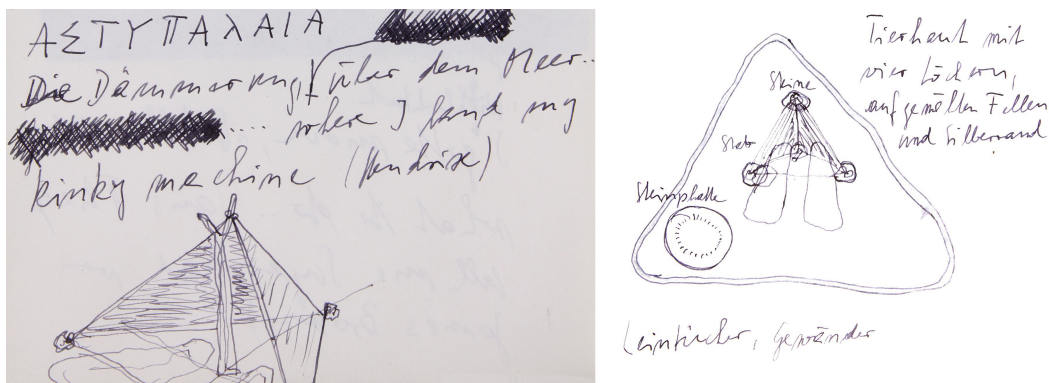 ΑΣΤΥΠΑλΑΙΑ
Die Dämmerung, über dem Meer..
.... where I land my
kinky machine (Hendrix)
Tierhaut mit
vier Löchern,
auf gemalten Fellen
und Silberrand
Steine
Stab
Steinplatte
Leintücher, Gewänder